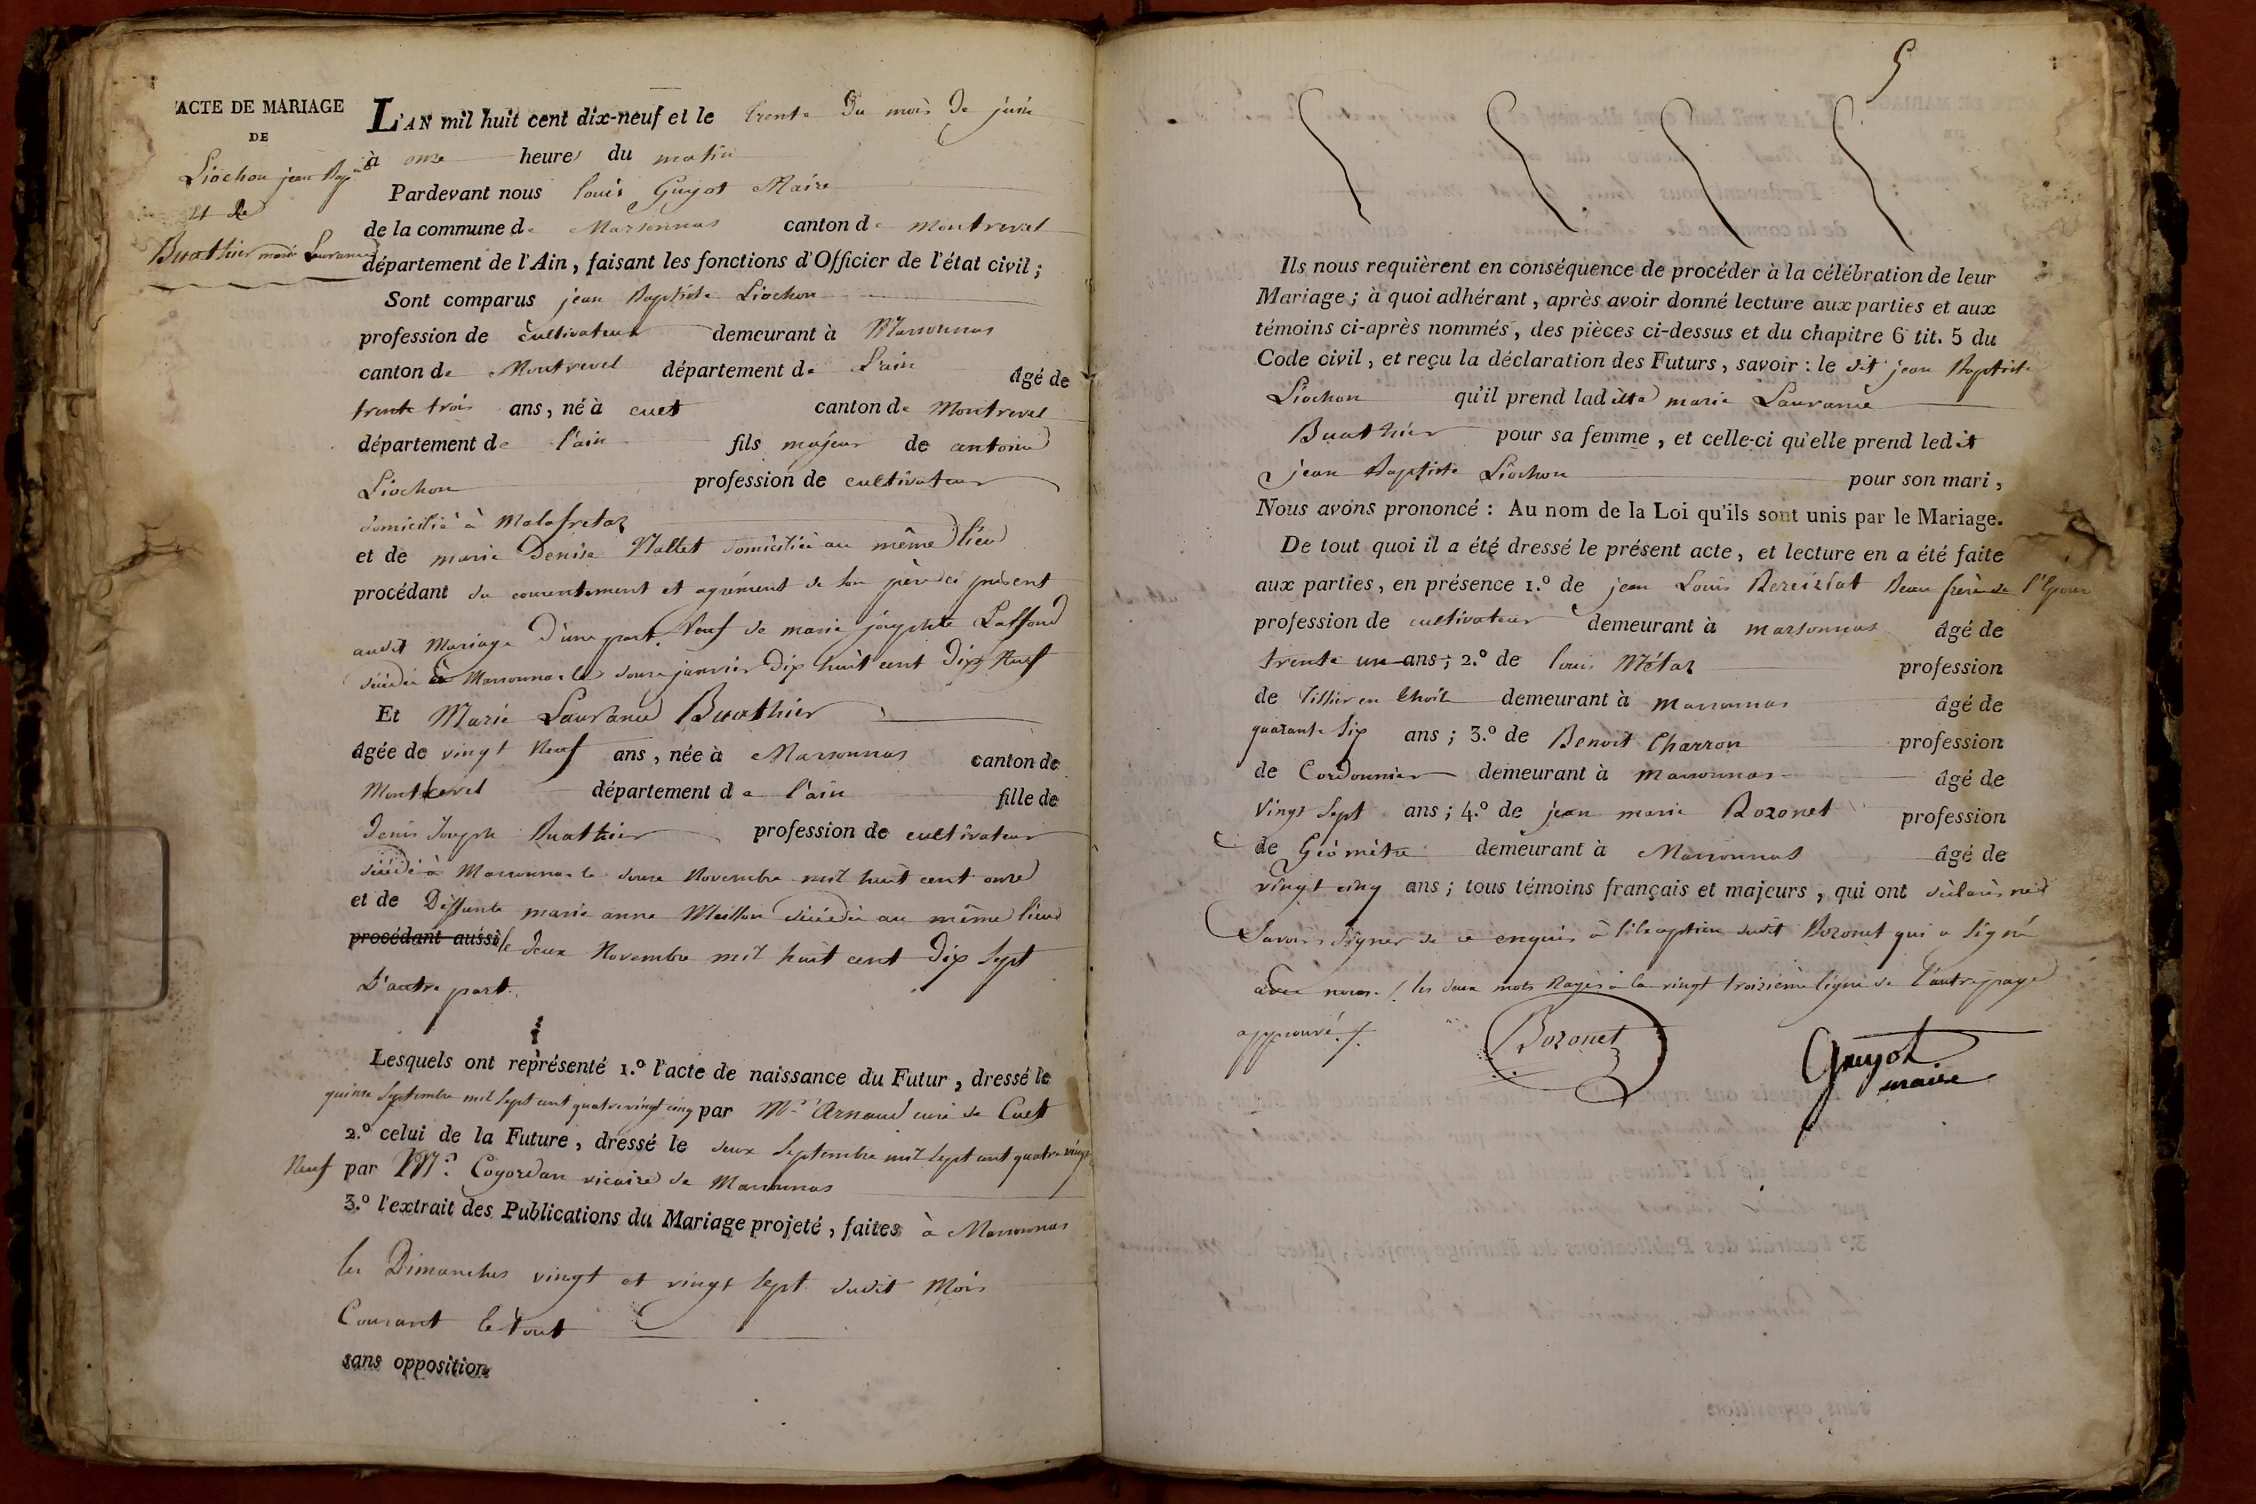 ACTE DE MARIAGE
DE
Liochon jean Bap.te
et de
Buathier marie Laurance
L'AN mil huit cent dix-neuf et le trente du mois de juin
à onze heures du matin
Pardevant nous louis Guyot Maire
de la commune de Marsonnas canton de Montrevel
département de l'Ain, faisant les fonctions d'Officier de l'état civil;
Sont comparus jean Baptiste Liochon
profession de cultivateur demeurant à Marsonnas
canton de Montrevel département de L'ain âgé de
trente trois ans, né à cuet canton de Montrevel
département de l'ain fils majeur de antoine
Liochon profession de cultivateur
domicilié à Malafretaz
et de marie Denise Mallet domiciliée au même lieu
procédant du consentement et agrément de son père ici présent
audit Mariage D'une part, Veuf de marie josephte Laffond
décédée à Marsonnas le douze janvier dix huit cent Dix Neuf
Et Marie Laurance Buathier
âgée de vingt Neuf ans, née à Marsonnas canton de
Montrevel département de l'ain fille de
Denis Joseph Buathier profession de cultivateur
décédé à Marsonnas le douze Novembre mil huit cent onze
et de Déffunte marie anne Meillon décédée au même lieu
procédant aussi le deux Novembre mil huit cent Dix Sept
D'autre part.
Lesquels ont représenté 1.º l'acte de naissance du Futur, dressé le
quinze Septembre mil sept cent quatre vingt cinq par M.r Arnaud curé de Cuet
2.º celui de la Future, dressé le deux Septembre mil sept cent quatre vingt
Neuf par M.r Coyordan vicaire de Marsonnas
3.º l'extrait des Publications du Mariage projeté, faites à Marsonnas
les Dimanches vingt et vingt sept dudit Mois
Courant le tout
sans opposition
5
Ils nous requièrent en conséquence de procéder à la célébration de leur
Mariage; à quoi adhérant, après avoir donné lecture aux parties et aux
témoins ci-après nommés, des pièces ci-dessus et du chapitre 6 tit. 5 du
Code civil, et reçu la déclaration des Futurs, savoir: le dit jean Baptiste
Liochon qu'il prend ladite marie Laurance
Buathier pour sa femme, et celle-ci qu'elle prend ledit
jean Baptiste Liochon pour son mari,
Nous avons prononcé: Au nom de la Loi qu'ils sont unis par le Mariage.
De tout quoi il a été dressé le présent acte, et lecture en a été faite
aux parties, en présence 1.º de jean Louis Bereiziat Beau frère de l'Epoux
profession de cultivateur demeurant à marsonnas âgé de
trente un ans; 2.º de louis Métaz profession
de tissier en thoile demeurant à marsonnas âgé de
quarante six ans; 3.º de Benoit Charron profession
de Cordonnier demeurant à marsonnas âgé de
vingt sept ans; 4.º de jean marie Bozonet profession
de Géomètre demeurant à Marsonnas âgé de
vingt cinq ans; tous témoins français et majeurs, qui ont déclarés ne
Savoir Signer de ce enquis à l'éxception dudit Bozonet qui a Signé
avec nous. / les deux mots Rayés à la vingt troizième ligne de l'autre page
approuvé ./.
Bozonet
Guyot
maire